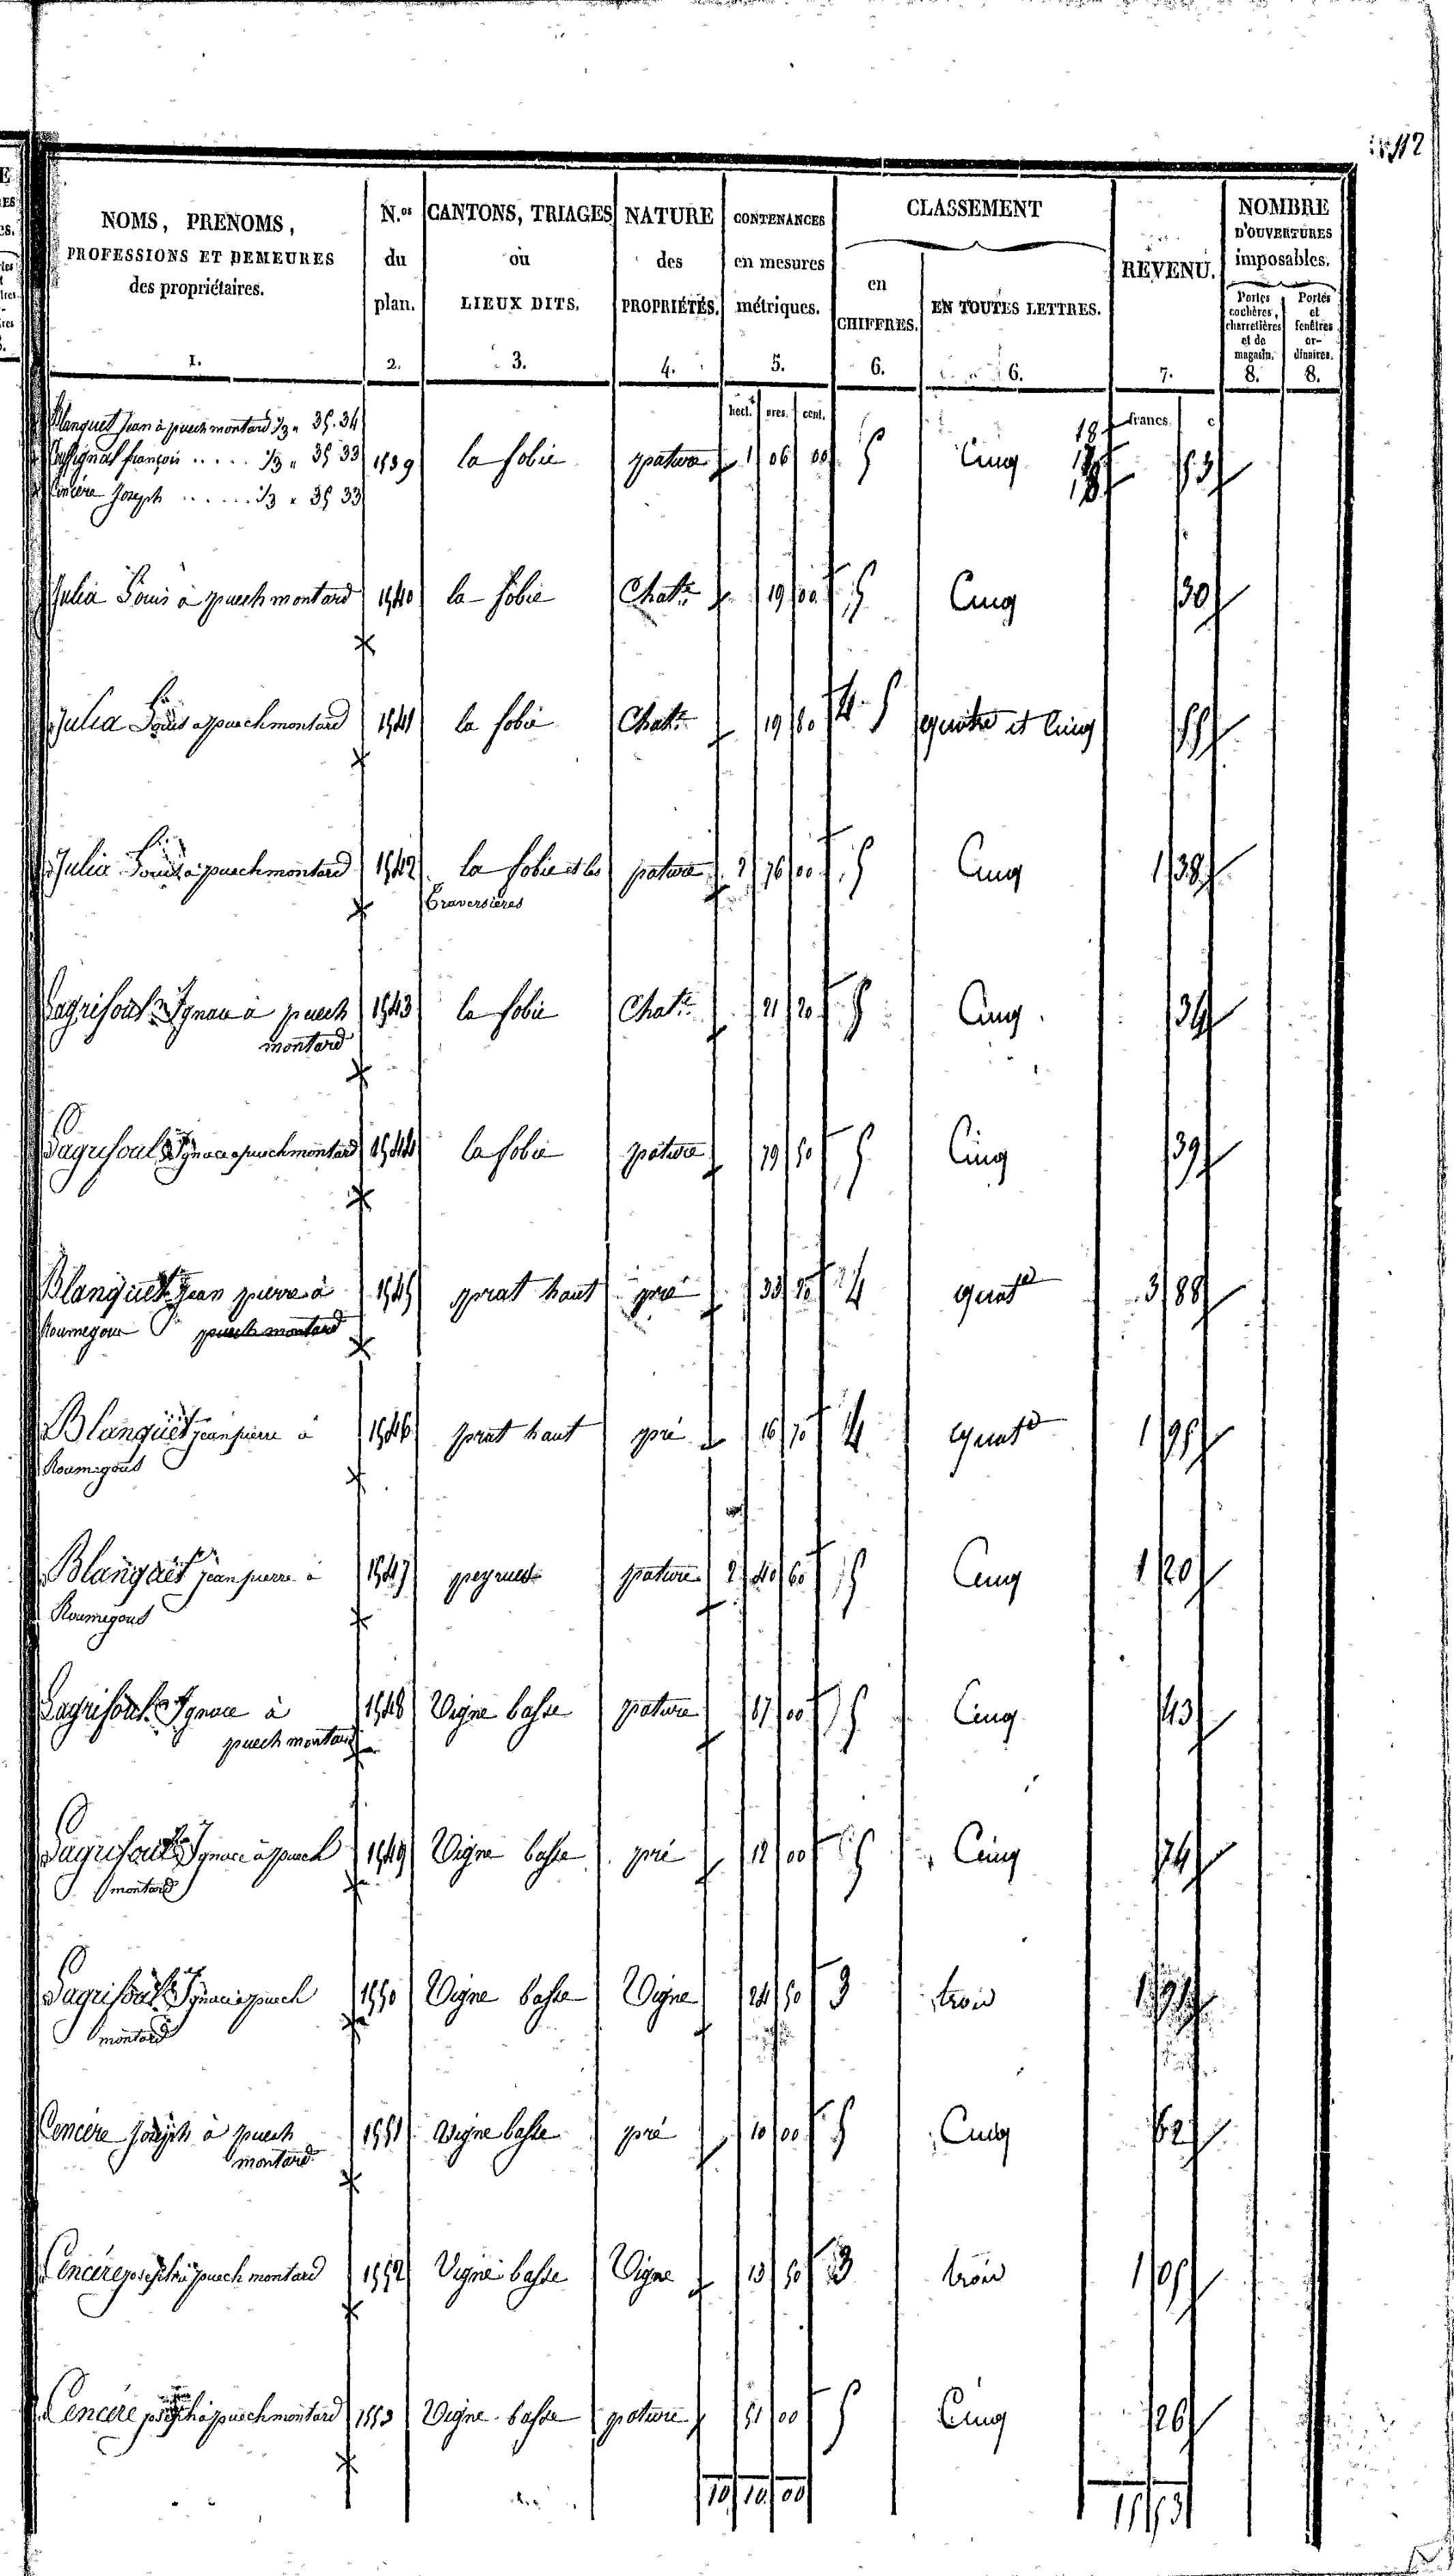 112
NOMS, PRENOMS, PROFESSIONS ET DEMEURES des propriétaires. 1.
N.os du plan. 2.
CANTONS, TRIAGES ou LIEUX DITS. 3.
NATURE des PROPRIÉTÉS. 4.
CONTENANCES en mesures métriques. 5.
CLASSEMENT
en CHIFFRES. 6.
EN TOUTES LETTRES. 6.
REVENU. 7.
NOMBRE D'OUVERTURES imposables.
Portes cochères, charretières et de magasin. 8.
Portes et fenêtres ordinaires. 8.
hect. ares. cent. francs. c
Blanquet Jean à puech montard 1/3 " 35. 34
françois ..... 1/3 " 35 33 1539 la folie pature 1 06 00 5 Cinq 53
Cencère Joseph ...... 1/3 " 35 33
Julia Louis à puech montard 1540 la folie Chat.re 19 00 5 Cinq 30
Julia Louis à puech montard 1541 la folie Chat.re 19 80 4. 5 quatre et Cinq 55
Julia Louis à puech montard 1542 la folie et les pature 2 76 00 5 Cinq 1 38
Traversieres
Lagrifoul Ignace à puech 1543 la folie Chat.re 21 20 5 Cinq 34
montard
Lagrifoul Ignace à puech montard 1544 la folie pature 79 50 5 Cinq 39
Blanquet Jean pierre à 1545 prat haut pré 33 4 quatre 3 88
Roumegoux puech montard
Blanquet jean pierre à 1546 prat haut pré 16 70 4 quatre 1 95
Roumegous
Blanquet jean pierre à 1547 pature 2 40 60 5 Cinq 1 20
Roumegous
Lagrifoul Ignace à 1548 Vigne basse pature 87 00 5 Cinq 43
puech montard
Lagrifoul Ignace à puech 1549 Vigne basse pré 12 00 5 Cinq 74
montard
Lagrifoul Ignace à puech 1550 Vigne basse Vigne 24 50 3 trois
montard
Cencère Joseph à puech 1551 Vigne basse pré 10 00 5 Cinq 62
montard
Cencère joseph à puech montard 1552 Vigne basse Vigne 13 50 3 trois 1 05
Cencère joseph à puech montard 1553 Vigne basse pature 51 00 5 Cinq 26
10 10 00 15 53